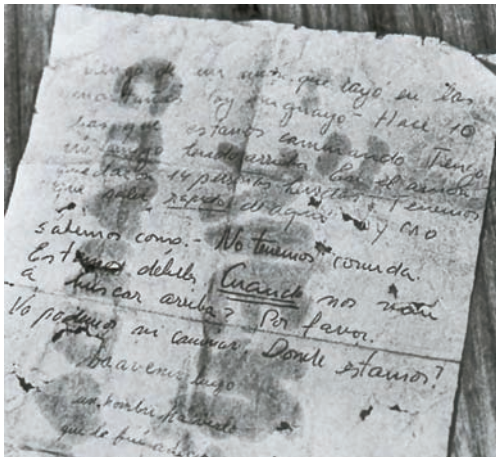 Vengo de un avión que cayó en las
montañas. Soy uruguayo - Hace 10
días que estamos caminando. Tengo
un amigo herido arriba. En el avión
quedan 14 personas heridas. Tenemos
que salir rápido de aquí y no
sabemos como.- No tenemos comida.
Estamos débiles. Cuando nos van
a buscar arriba? Por favor.
No podemos ni caminar. Donde estamos?
ba avenir luego
un hombre
que le